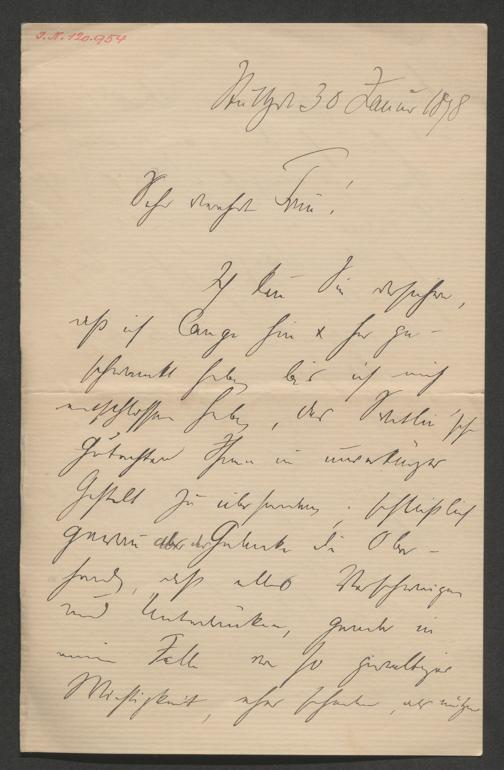 I.N. 120.954
Stuttgt. 30 Januar 1898
Sehr verehrte Frau!
Ich kann Sie versichern,
daß ich lange hin & her ge-
schwankt habe, bis ich mich
entschlossen habe, das
Gutachten Ihnen in unverkürzter
Gestalt zu übersenden; schließlich
gewann aber der Gedanke die Ober-
hand, daß alles Verschweigen
und Unterdrücken, gerade in
einem Falle von so gewaltiger
Wichtigkeit, eher schaden, als nützen